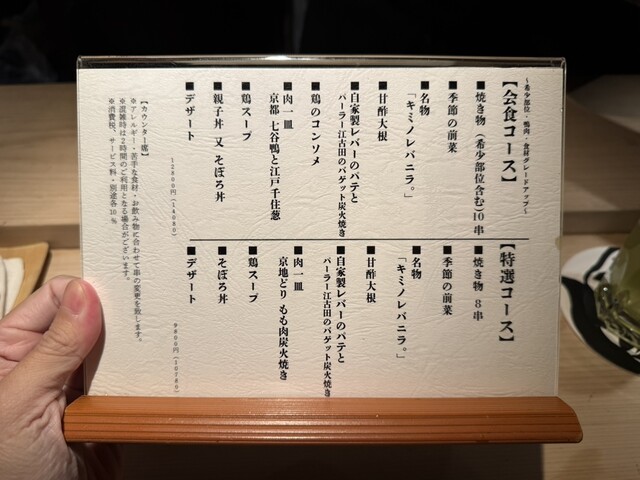 ~希少部位・鴨肉・食材グレードアップ~
【会食コース】
■焼き物(希少部位含む)10串
■季節の前菜
■名物
「キミノレバニラ。」
■甘酢大根
■自家製レバーのパテと
パーラー江古田のバゲット炭火焼き
■鶏のコンソメ
■肉一皿
京都 七谷鴨と江戸千住葱
■鶏スープ
■親子丼 又 そぼろ丼
■デザート
12800円(14080)
【特選コース】
■焼き物 8串
■季節の前菜
■名物
「キミノレバニラ。」
■甘酢大根
■自家製レバーのパテと
パーラー江古田のバゲット炭火焼き
■肉一皿
京地どり もも肉炭火焼き
■鶏スープ
■そぼろ丼
■デザート
9800円(10780)
【カウンター席】
※アレルギー・苦手な食材・お飲み物に合わせて串の変更を致します。
※混雑時は2時間のご利用となる場合がございます。
※消費税、サービス料・別途各10%